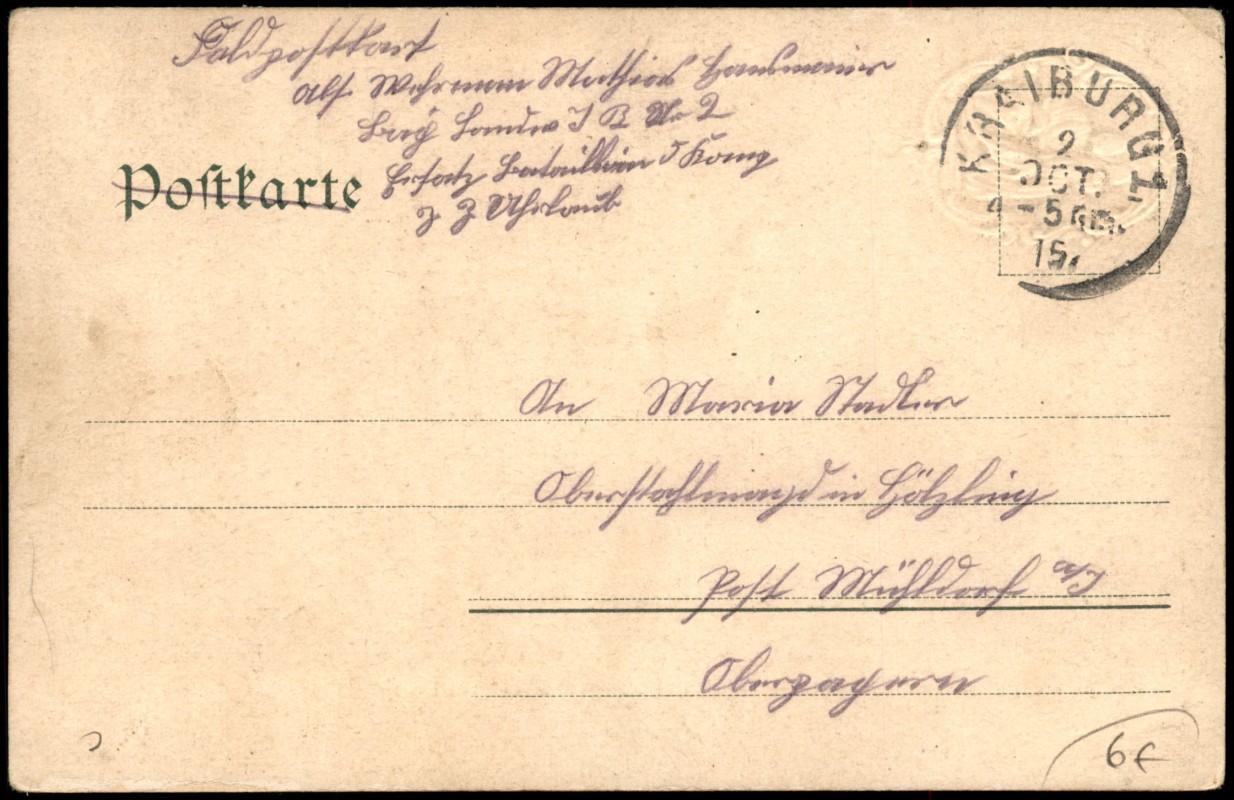 Feldpostkart
Abs. Wehrman Mathias Hausmanier
Bay Landw I R Nr 2
Ersatz Bataillion 5 Komp
z Z Uhrlaub
Postkarte
KRAIBURG 1
2
OCT.
4-5 Nm.
15.
An Maria Stadler
Oberstahlmagd in Hölzling
Post Mühldorf a/I
Oberpayern
6€